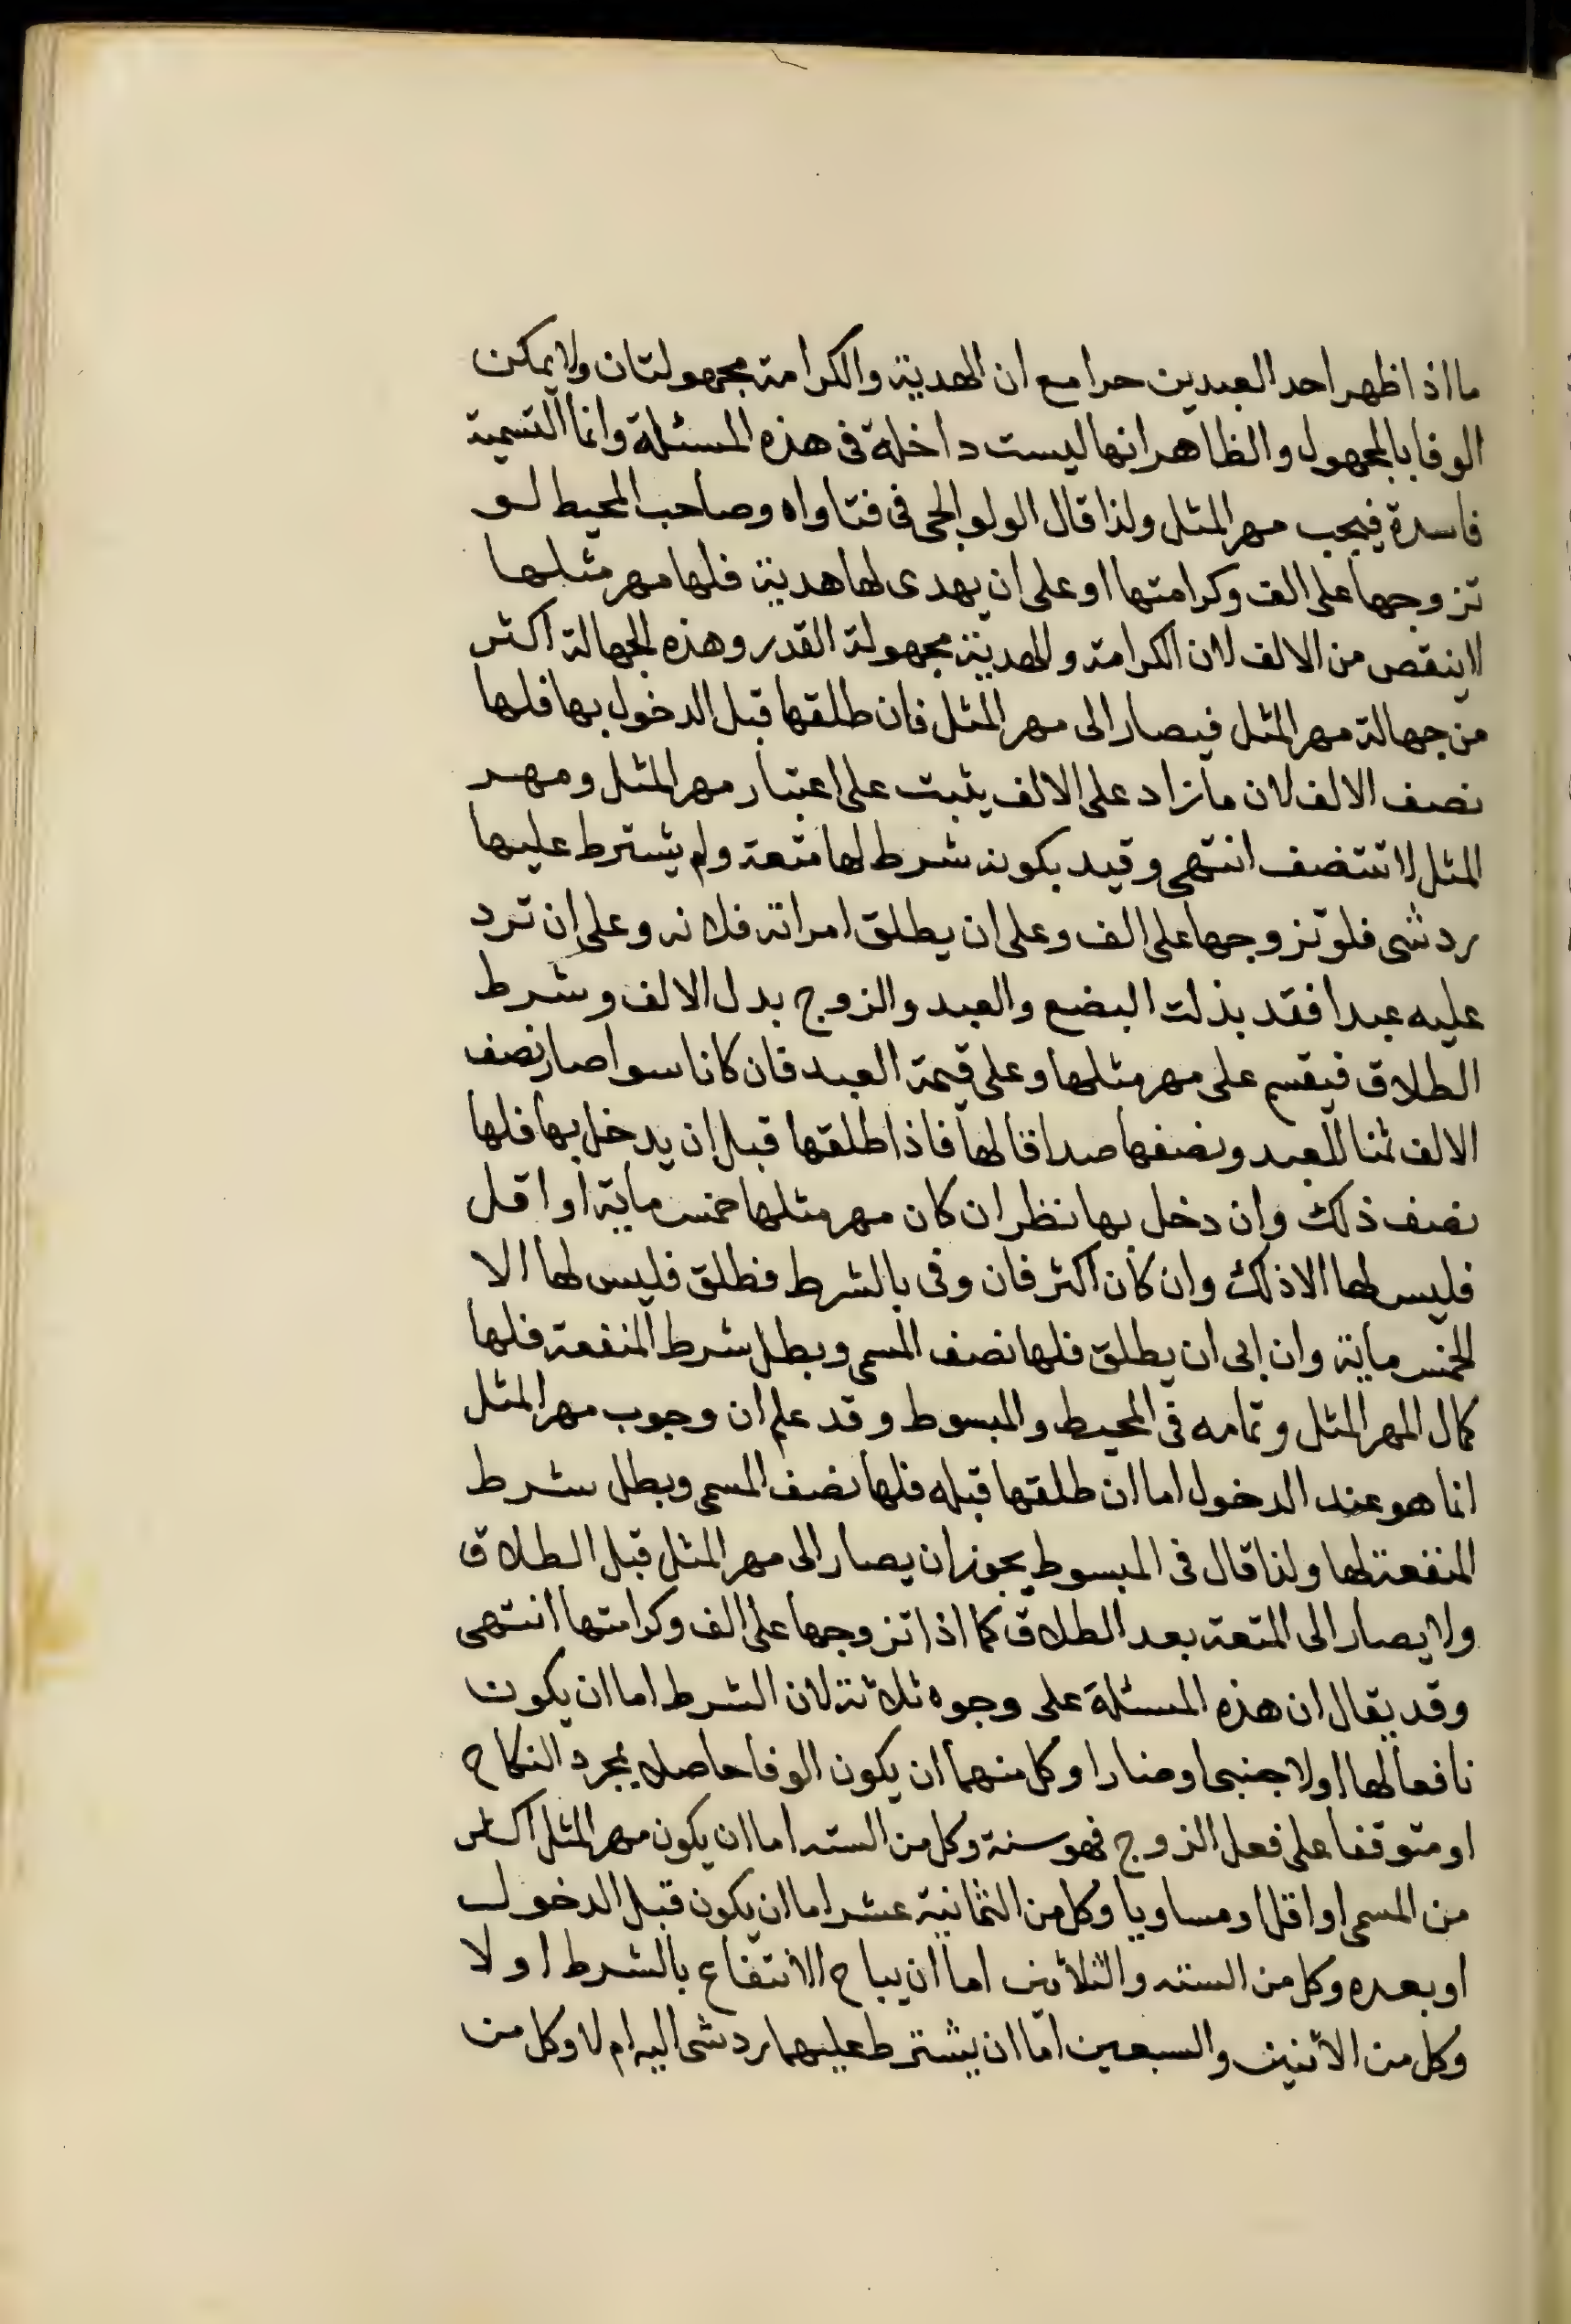 ما اذا ظهر احد العبدين حرا مع ان الهدية والكرامة مجهولتان ولا يمكن
الوفا بالمجهول والظاهر انها ليست داخلة فى هذه المسئلة وانما التسمية
فاسدة فيجب مهر المثل ولذا قال الولوالجى فى فتاواه وصاحب المحيط لو
تزوجها على الف وكرامتها او على ان يهدى لها هدية فلها مهر مثلها
لا ينقص من الالف لان الكرامة والهدية مجهولة القدر وهذه الجهالة اكثر
من جهالة مهر المثل فيصار الى مهر المثل فان طلقها قبل الدخول بها فلها
نصف الالف لان ما زاد على الالف يثبت على اعتبار مهر المثل ومهر
المثل لا تتنصف انتهى وقيد بكونه شرط لها منفعة ولم يشترط عليها
رد شى فلو تزوجها على الف وعلى ان يطلق امراته فلانه وعلى ان ترد
عليه عبدا فقد بذلت البضع والعبد والزوج بدل الالف وشرط
الطلاق فيقسم على مهر مثلها وعلى قيمة العبد فان كانا سوا صار نصف
الالف ثمنا للعبد ونصفها صداقا لها فاذا طلقها قبل ان يدخل بها فلها
نصف ذلك وان دخل بها نظر ان كان مهر مثلها خمس ماية او اقل
فليس لها الا ذلك وان كان اكثر فان وفى بالشرط فطلق فليس لها الا
الخمس ماية وان ابى ان يطلق فلها نصف المسمى وبطل شرط المنفعة فلها
كمال المهر المثل وتمامه فى المحيط والمبسوط وقد علم ان وجوب مهر المثل
انما هو عند الدخول اما ان طلقها قبله فلها نصف المسمى وبطل شرط
المنفعة لها ولذا قال فى المبسوط يجوز ان يصار الى مهر المثل قبل الطلاق
ولا يصار الى المتعة بعد الطلاق كما اذا تزوجها على الف وكرامتها انتهى
وقد يقال ان هذه المسئلة على وجوه ثلاثة لان الشرط اما ان يكون
نافعا لها او لاجنبى او ضارا وكل منهما ان يكون الوفا حاصلا بمجرد النكاح
او متوقفا على فعل الزوج فهو ستة وكل من الستة اما ان يكون مهر المثل اكثر
من المسمى او اقل او مساويا وكل من الثمانية عشر اما ان يكون قبل الدخول
او بعده وكل من الستة والثلاثين اما ان يباح الانتفاع بالشرط او لا
وكل من الاثنين والسبعين اما ان يشترط عليهما رد شى اليه ام لا وكل من